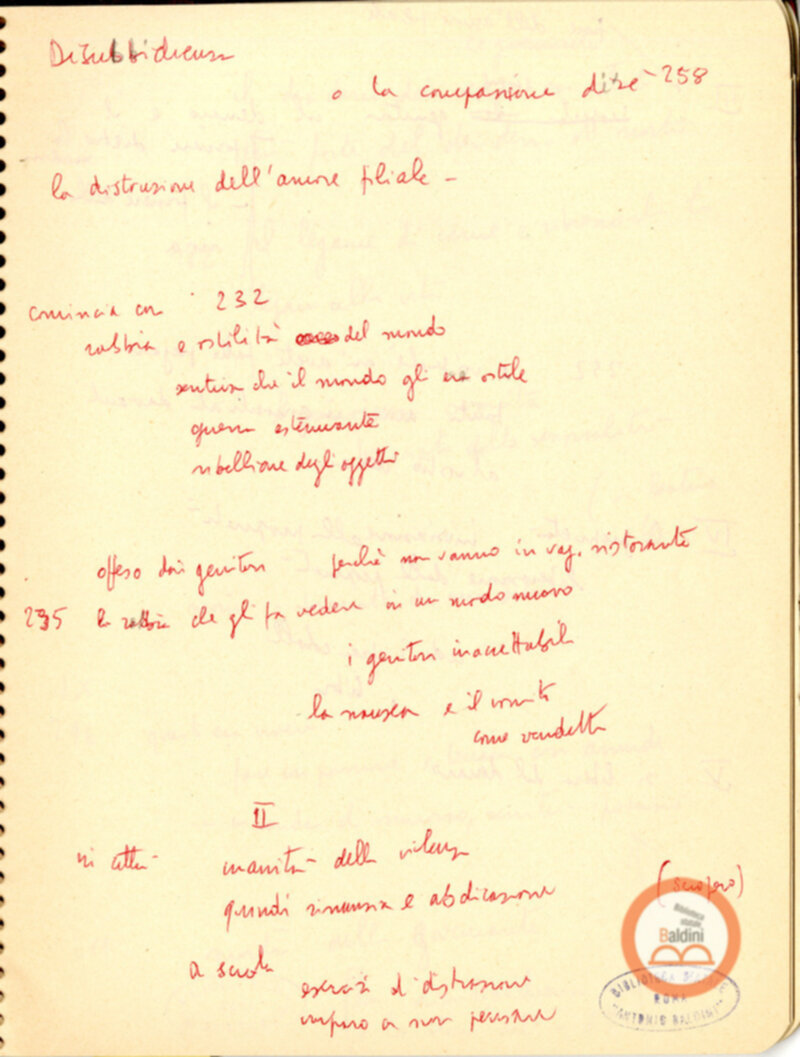 Disubbidienza
o la compassione di sé - 258
la distruzione dell'amore filiale -
comincia con 232
rabbia e ostilità del mondo
sentiva che il mondo gli era ostile
guerra estenuante
ribellione degli oggetti
offeso dai genitori perché non vanno in vag. ristorante
235 la rabbia che gli fa vedere in un modo nuovo
i genitori inaccettabili
la nausea e il vomito
come vendetta
II
in città inanità della violenza
quindi rinunzia e abdicazione (sciopero)
a scuola
esercizi di distrazione
impara a non pensare
Biblioteca
statale
Baldini
BIBLIOTECA STATALE
ROMA
"ANTONIO BALDINI"